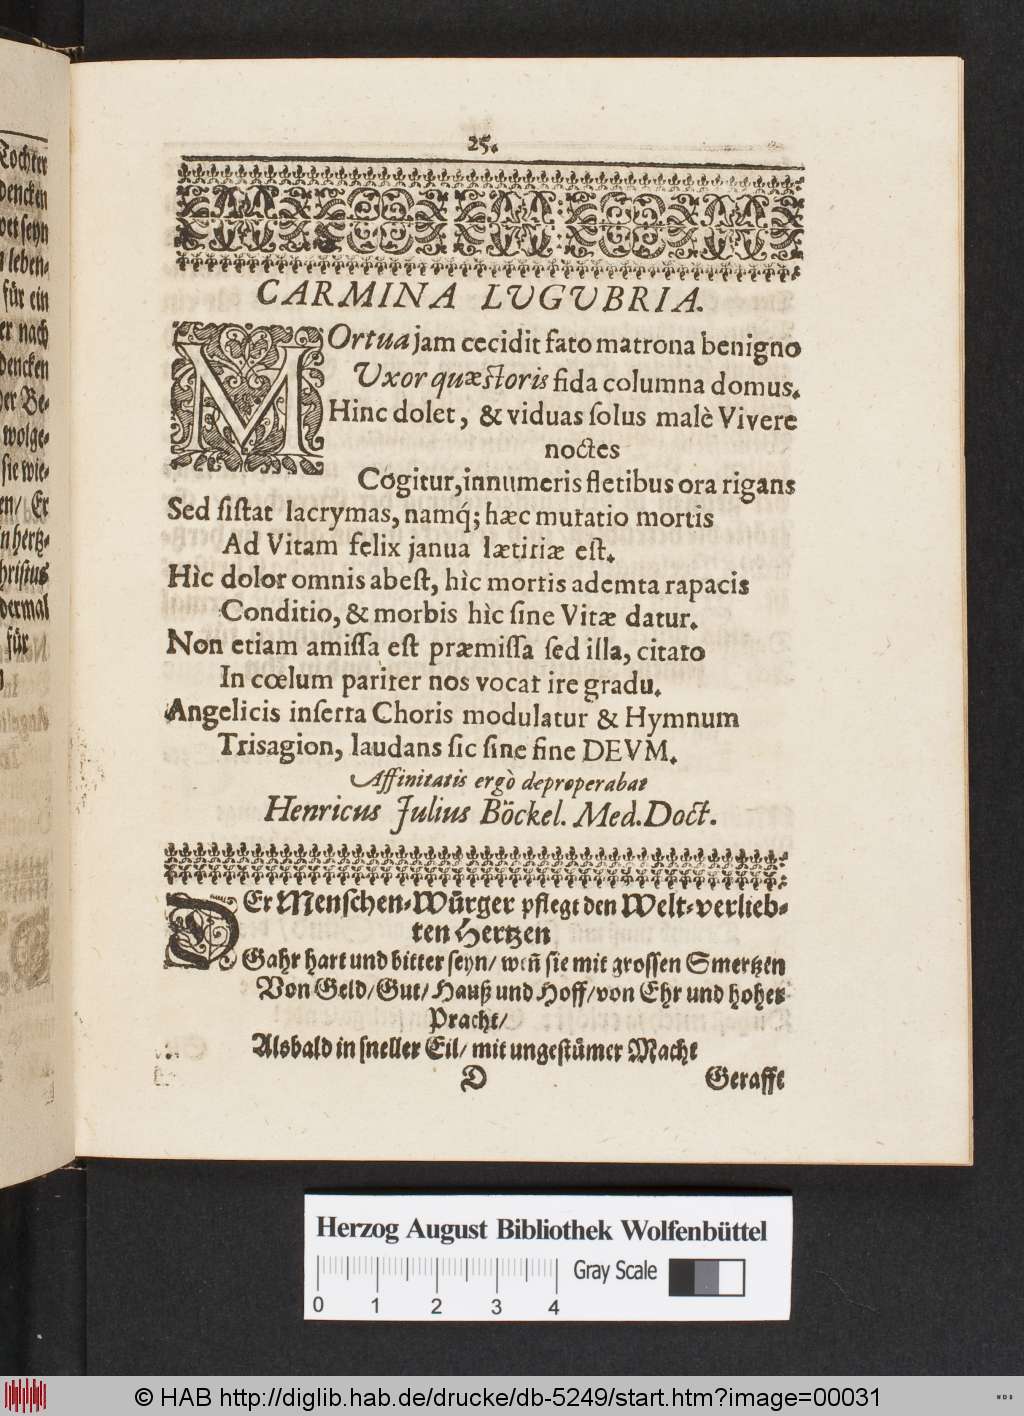 Tochter
dencken
wet seyn
leben-
für ein
er nach
dencken
er Be-
wolge-
sie wie-
en/ Er
n hertz-
hristus
dermal
für
25.
CARMINA LVGVBRIA.
MOrtua jam cecidit fato matrona benigno
Vxor quæstoris fida columna domus.
Hinc dolet, & viduas ſolus malè Vivere
noctes
Cogitur, innumeris fletibus ora rigans
Sed ſiſtat lacrymas, namq́; hæc mutatio mortis
Ad Vitam felix janua lætitiæ eſt.
Hìc dolor omnis abeſt, hìc mortis ademta rapacis
Conditio, & morbis hìc ſine Vitæ datur.
Non etiam amiſſa eſt præmiſſa ſed illa, citato
In cœlum pariter nos vocat ire gradu.
Angelicis inſerta Choris modulatur & Hymnum
Trisagion, laudans ſic ſine fine DEVM.
Affinitatis ergò deproperabat
Henricus Julius Böckel. Med. Doct.
DEr Menſchen-Wuͤrger pflegt den Welt-verlieb-
ten Hertzen
Gahr hart und bitter ſeyn/ weñ ſie mit groſſen Smertzen
Von Geld/ Gut/ Hauß und Hoff/ von Ehr und hoher
Pracht/
Alsbald in ſneller Eil/ mit ungeſtuͤmer Macht
D
Gerafft
Herzog August Bibliothek Wolfenbüttel
Gray Scale
0 1 2 3 4
© HAB http://diglib.hab.de/drucke/db-5249/start.htm?image=00031